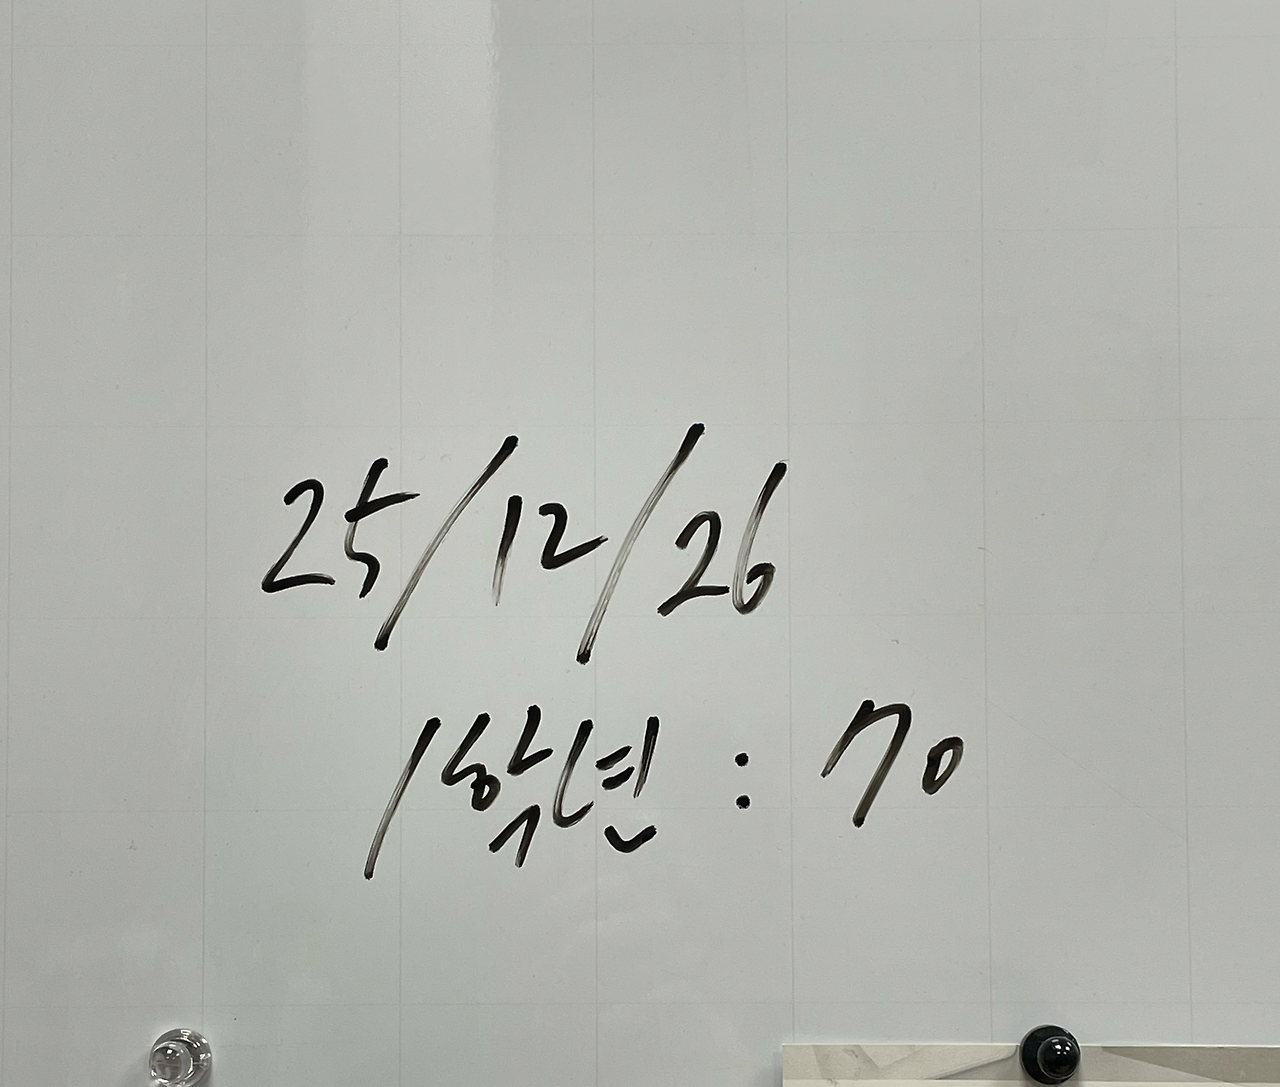 25/12/26
1학년 : 70